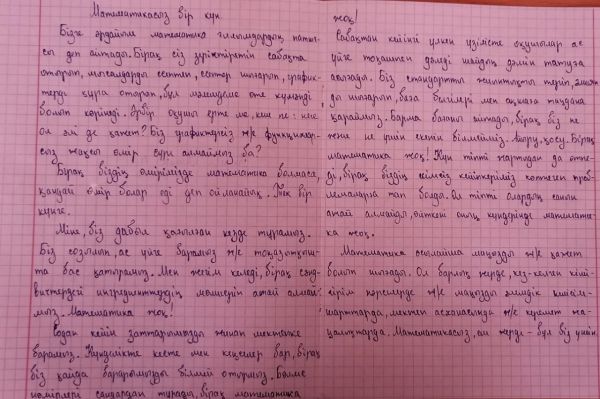 Математикасыз бір күн.
Бізге әрдайым математика ғылымдардың патша-
сы деп айтады. Бірақ сіз зеріктіретін сабақта
отырып, мысалдарды есептеп, есептер шығарып, график-
терді құра отырып, бұл мәлімдеме өте күмәнді
болып көрінеді. Әрбір оқушы ерте ме, кеш пе:
ол әлі де қажет? Біз графиктерсіз ж/е функциялар-
сыз жақсы өмір сүре алмаймыз ба?
Бірақ біздің өмірімізде математика болмаса,
қандай өмір болар еді деп ойланайық. Тек бір
күнге.
Міне, біз дабыл қағылған кезде тұрамыз.
Біз созылып, ас үйге барамыз ж/е тоңазытқыш-
та бас қатырамыз. Мен жегім келеді, бірақ сэнд-
вичтердегі ингредиенттердің мөлшерін атай алмай-
мыз. Математика жоқ!
Содан кейін заттарымызды жинап мектепке
барамыз. Күнделікте кесте мен кеңселер бар, бірақ
біз қайда барарымызды білмей отырмыз. Бөлме
нөмірлері сандардан тұрады, бірақ математика
жоқ!
Сабақтан кейінгі үлкен үзілісте оқушылар ас
үйге тоқашпен дәмді шайдың дәмін татуға
асығады. Біз стандартты жиынтықты теріп,
ды шығарып, баға белгілері мен ақшаға таңдана
қараймыз. Барма бағасы айтады, бірақ біз не
және не үшін екенін білмейміз. Алу, қосу. Бірақ
математика жоқ! Күн тіпті жартудан да өтпе-
ді, бірақ біздің кейіпкеріміз көптеген проб-
лемаларға тап болды. Ол тіпті олардың санын
атай алмайды, өйткені оның күндерінде математи-
ка жоқ.
Математика осылайша маңызды ж/е қажет
болып шығады. Ол барлық жерде, кез-келген кіші-
гірім нәрселерде ж/е маңызды әлемдік келісім-
шарттарда, мектеп асханасында ж/е күрмет жа-
ңалықтарда. Математикасыз, еш жерде - бұл біз үшін